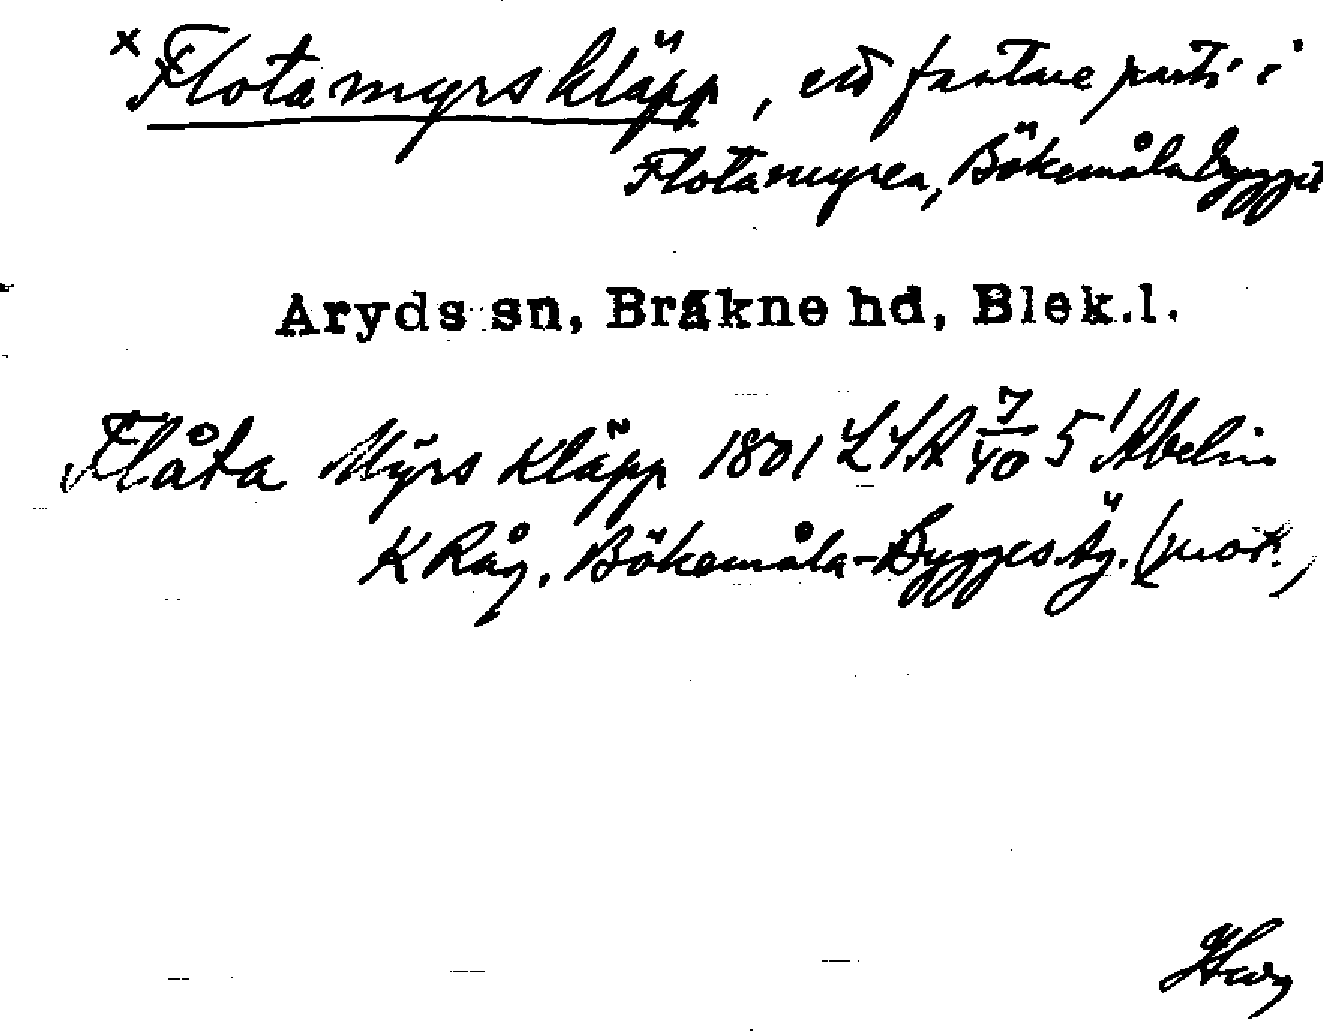 x Flotamyrskläpp, ett fastare parti i
Flotamyren, Bökemåla bygget
Aryds sn, Bräkne hd, Blek.l.
Flåta Myrs Kläpp 1801 LSA 7/40 5 Abelin
K Råg. Bökemåla-Bygges äg. (prot.)